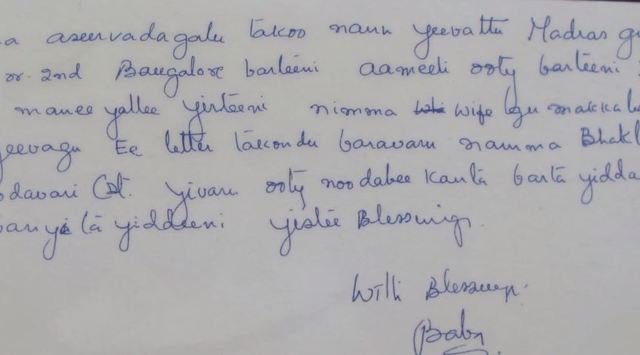 a aseervadagalu takoo nanu yeevattu Madras gu
or. 2nd Bangalore barteeni aameeli ooty barteeni
manee yallee yirteeni nimma wife gu makkalu
yeevagu Ee letter takondu baravaru namma Bhakt
odavari Cst. yivaru ooty noodabee kanta barta yidda
yiddeeni yestee Blessings.
With Blessings.
Baba